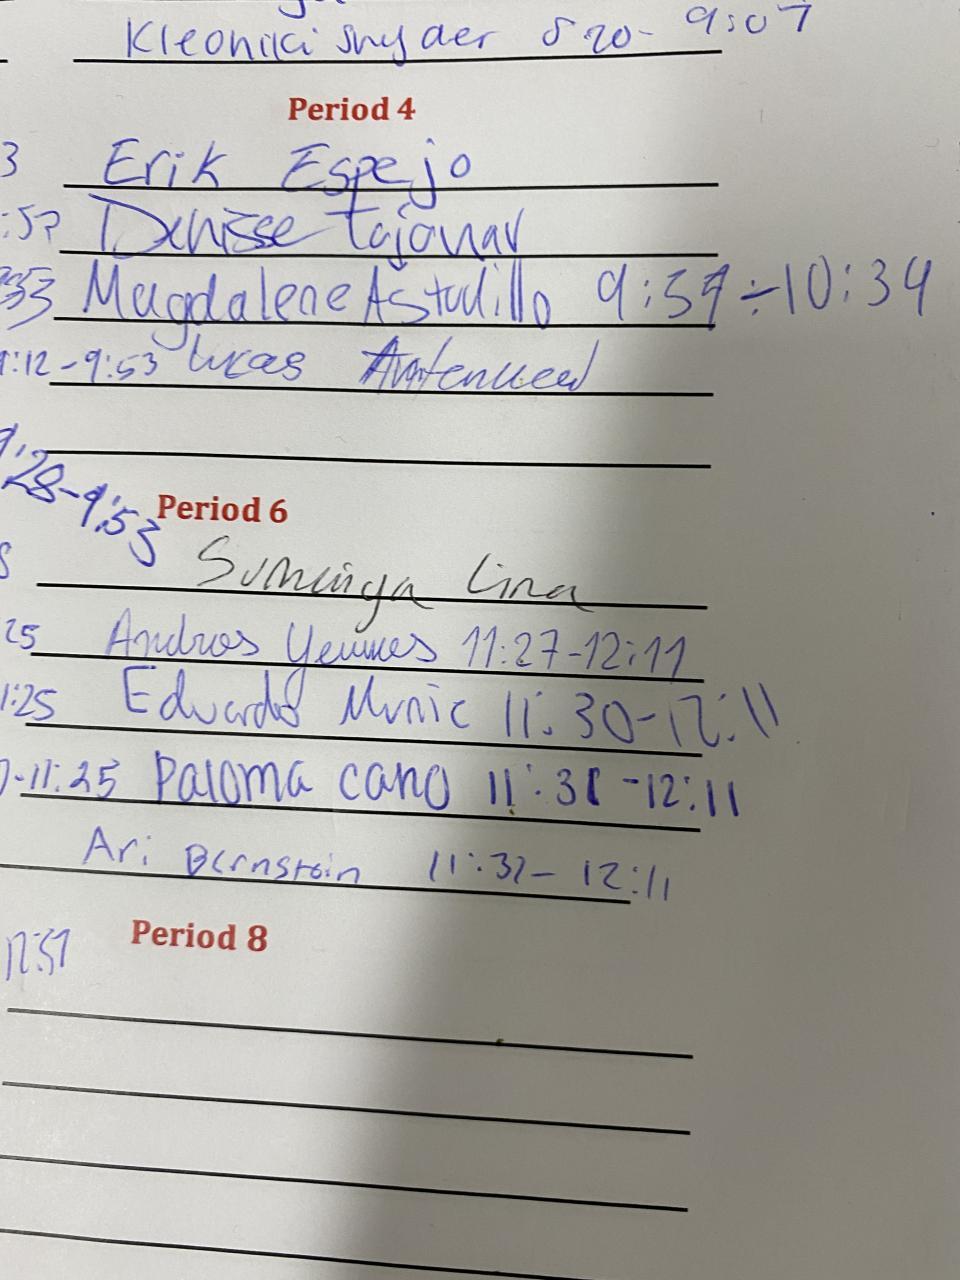 Kleoniki snyder 8 20- 9:07
Period 4
3 Erik Espejo
:57 Denisse Tajonar
Magdalene Astudillo 9:59-10:34
9:12-9:53 Lucas
9:28-9:53
Period 6
Lina
25 Andros 11:27-12:11
1:25 Eduardo 11:30-12:11
-11:25 Paloma cano 11:31-12:11
Ari Bernstein 11:32- 12:11
Period 8